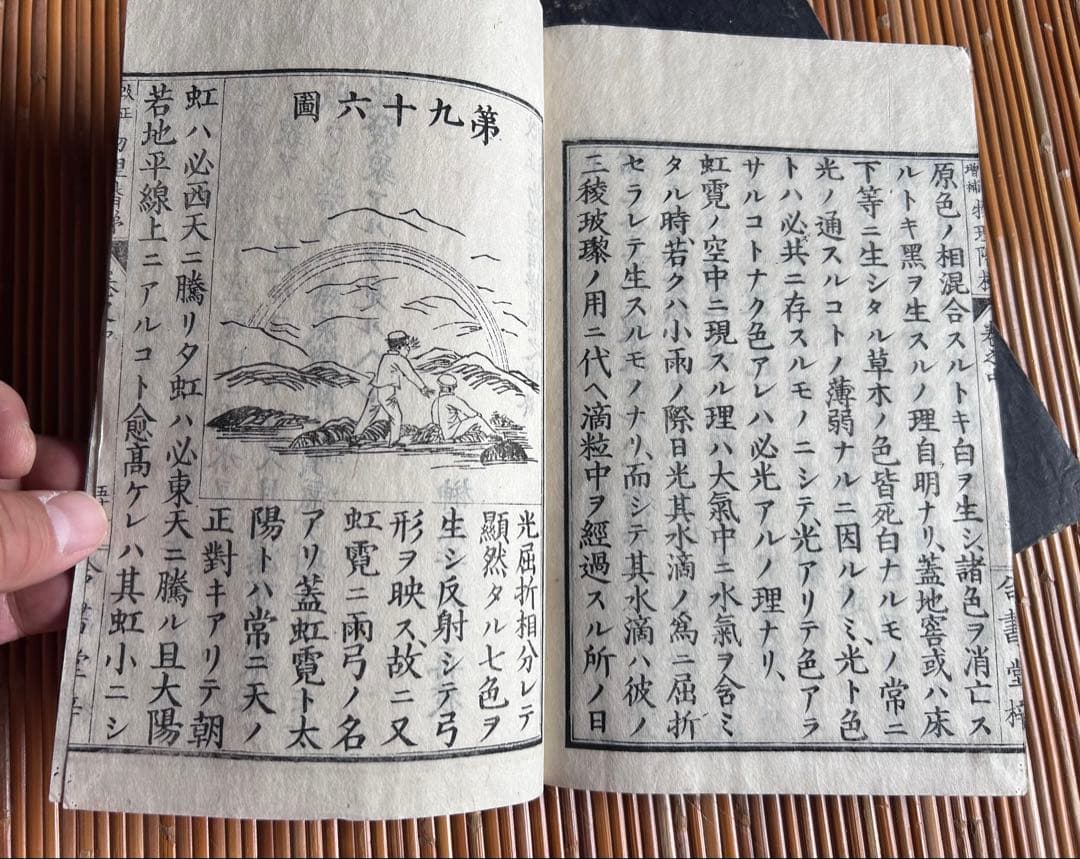 原色ノ相混合スルトキ白ヲ生シ、諸色ヲ消亡ス
ルトキ黒ヲ生スルノ理自明ナリ、蓋地窖或ハ床
下等ニ生シタル草木ノ色皆死白ナルモノ常ニ
光ノ通スルコトノ薄弱ナルニ因ルノミ、光ト色
トハ必共ニ存スルモノニシテ、光アリテ色アラ
サルコトナク色アレハ必光アルノ理ナリ、
虹霓ノ空中ニ現スル理ハ大氣中ニ水氣ヲ含ミ
タル時、若クハ小雨ノ際日光其水滴ノ為ニ屈折
セラレテ生スルモノナリ、而シテ其水滴ハ彼ノ
三稜玻瓈ノ用ニ代ヘ滴粒中ヲ經過スル所ノ日
第九十六圖
光屈折相分レテ
顯然タル七色ヲ
生シ反射シテ弓
形ヲ映ス、故ニ又
虹霓ニ雨弓ノ名
アリ蓋虹霓ト太
陽トハ常ニ天ノ
正對キアリテ朝
虹ハ必西天ニ騰リ夕虹ハ必東天ニ騰ル且大陽
若地平線上ニアルコト愈高ケレハ其虹小ニシ